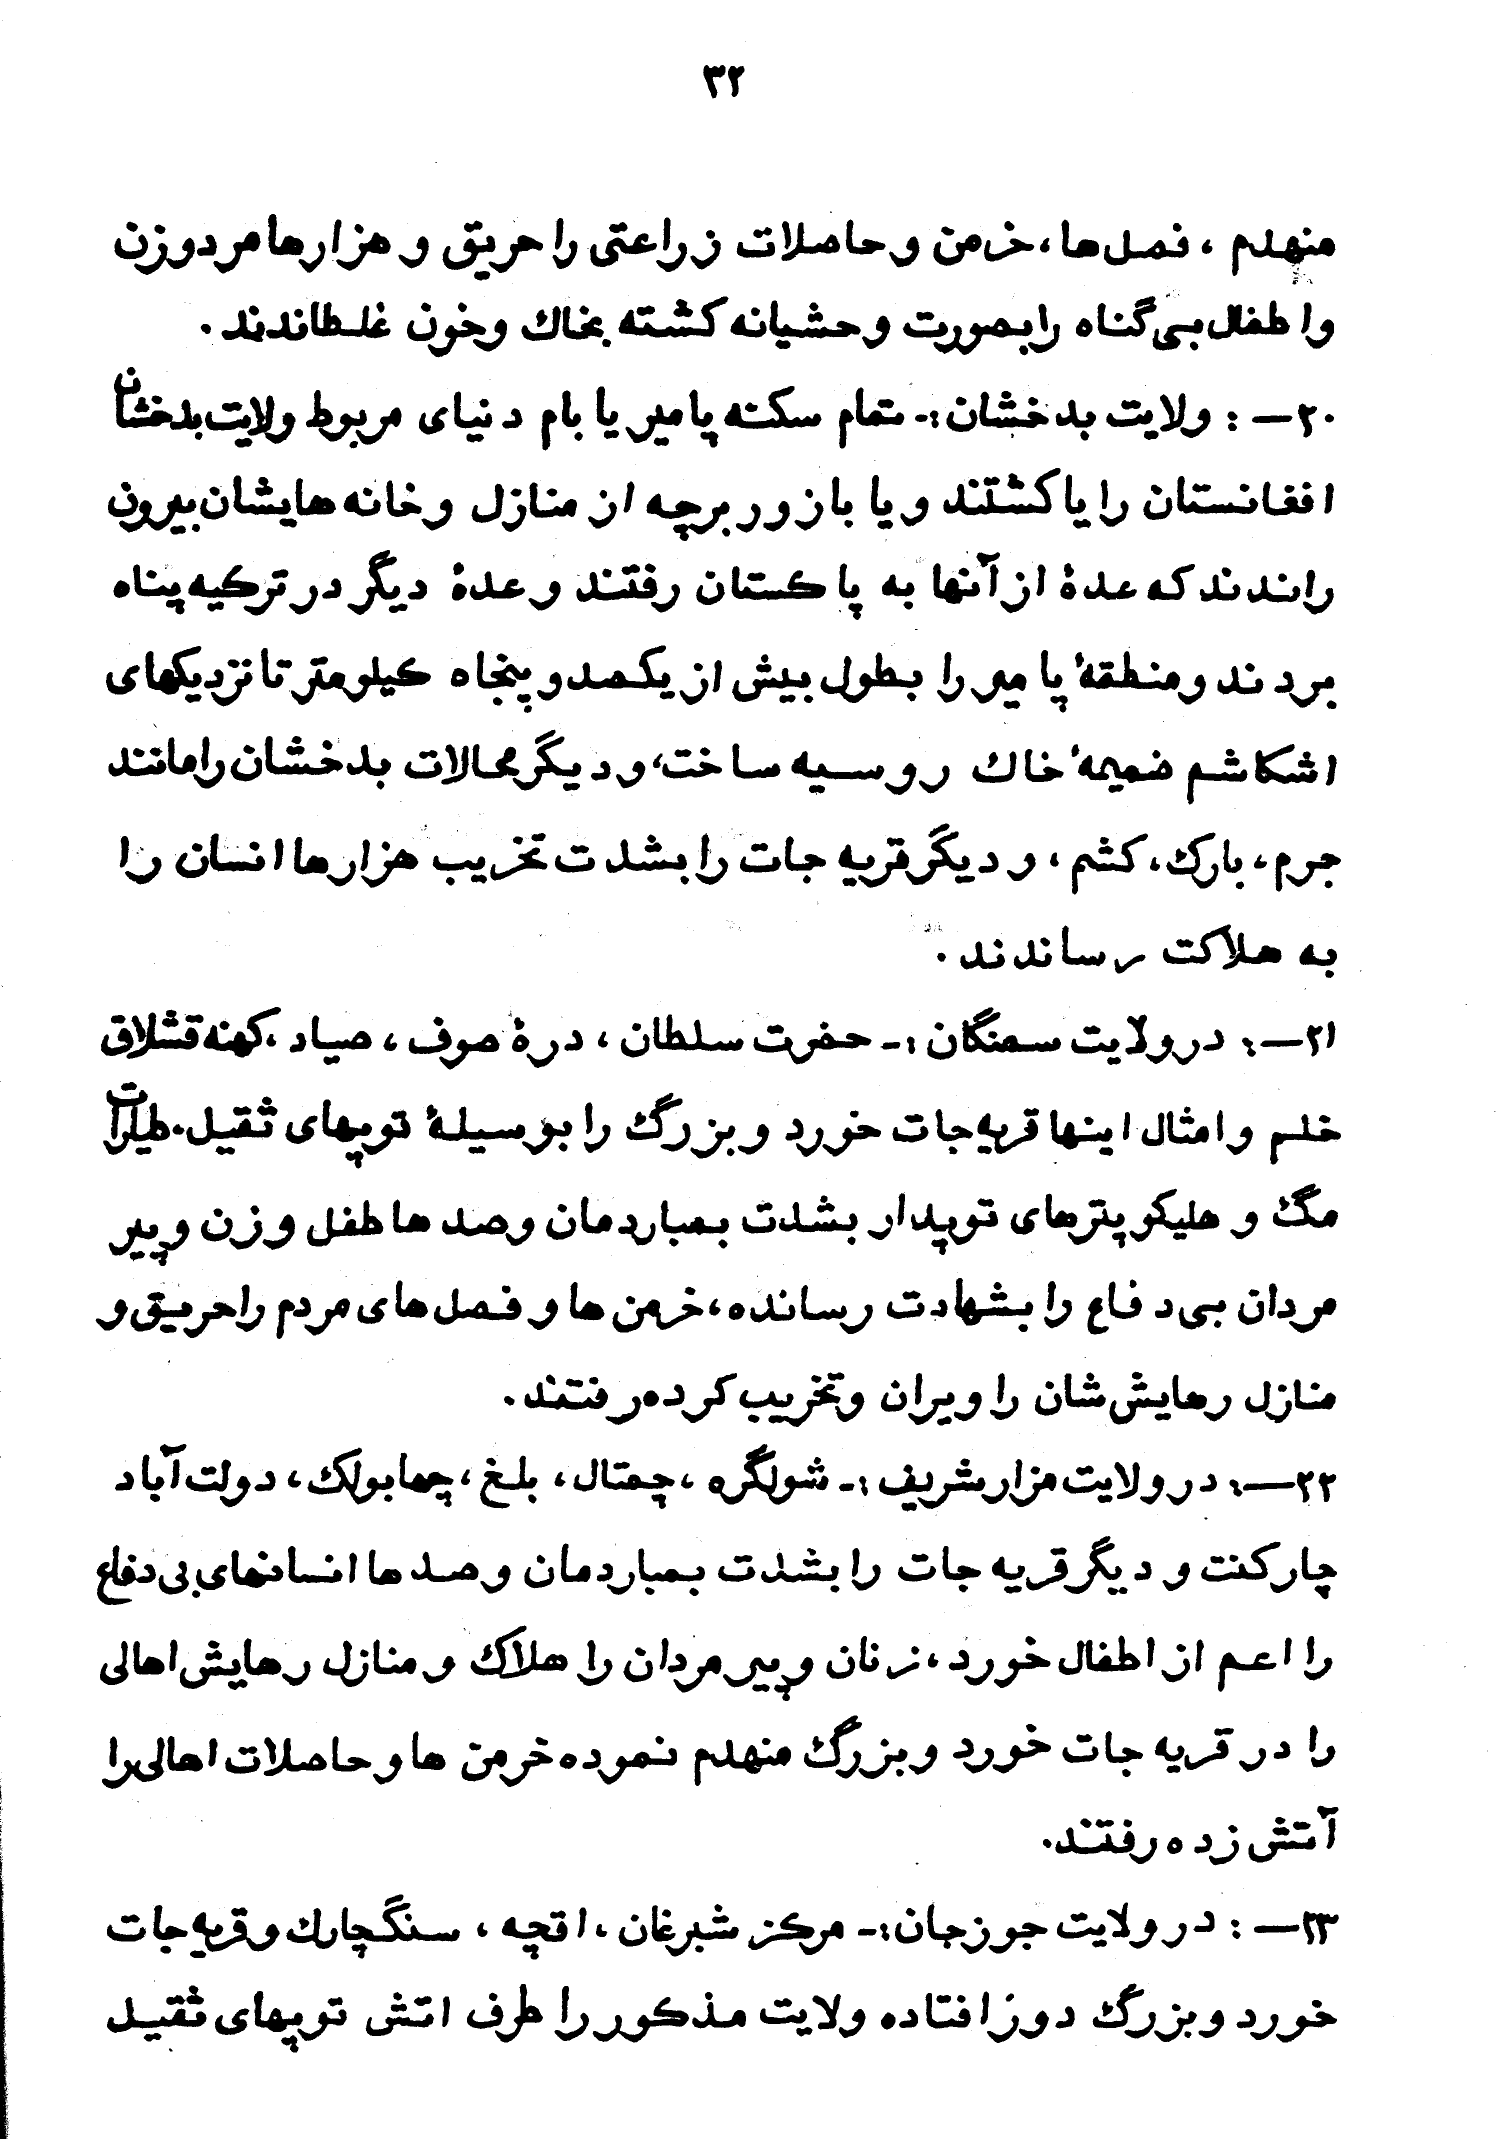 ۳۲
منهدم ، فصل ها ، خرمن و حاصلات زراعتی را حریق و هزارها مرد و زن
و اطفال بی گناه را بصورت وحشیانه کشته بخاك وخون غلطاندند .
۲۰— : ولایت بدخشان :- تمام سکنه پامیر یا بام دنیای مربوط ولایت بدخشان
افغانستان را یا کشتند و یا با زور برچه از منازل وخانه هایشان بیرون
راندند که عدهٔ از آنها به پاکستان رفتند و عدهٔ دیگر در ترکیه پناه
بردند ومنطقهٔ پامیر را بطول بیش از یکصد و پنجاه کیلومتر تا نزدیکهای
اشکاشم ضمیمهٔ خاك روسیه ساخت، و دیگر محالات بدخشان را مانند
جرم ، بارك ، کشم ، و دیگر قریه جات را بشدت تخریب هزارها انسان را
به هلاکت رساندند .
۲۱—: در ولایت سمنگان :- حضرت سلطان ، درهٔ صوف ، صیاد ، کهنه قشلاق
خلم و امثال اینها قریه جات خورد و بزرگ را بوسیلهٔ توپهای ثقیل . طیارات
مگ و هلیکوپترهای توپدار بشدت بمباردمان وصد ها طفل و زن و پیر
مردان بی دفاع را بشهادت رسانده ، خرمن ها و فصل های مردم را حریق و
منازل رهایش شان را ویران و تخریب کرده رفتند .
۲۲—: در ولایت مزار شریف :- شولگره ، چمتال ، بلخ ، چهابولك ، دولت آباد
چارکنت و دیگر قریه جات را بشدت بمباردمان و صد ها انسانهای بی دفاع
را اعم از اطفال خورد ، زنان و پیر مردان را هلاك و منازل رهایش اهالی
را در قریه جات خورد و بزرگ منهدم نموده خرمن ها و حاصلات اهالی را
آتش زده رفتند .
۲۳— : در ولایت جوزجان :- مرکز شبرغان ، اقچه ، سنگچارك و قریه جات
خورد و بزرگ دورافتاده ولایت مذکور را طرف اتش توپهای ثقیل